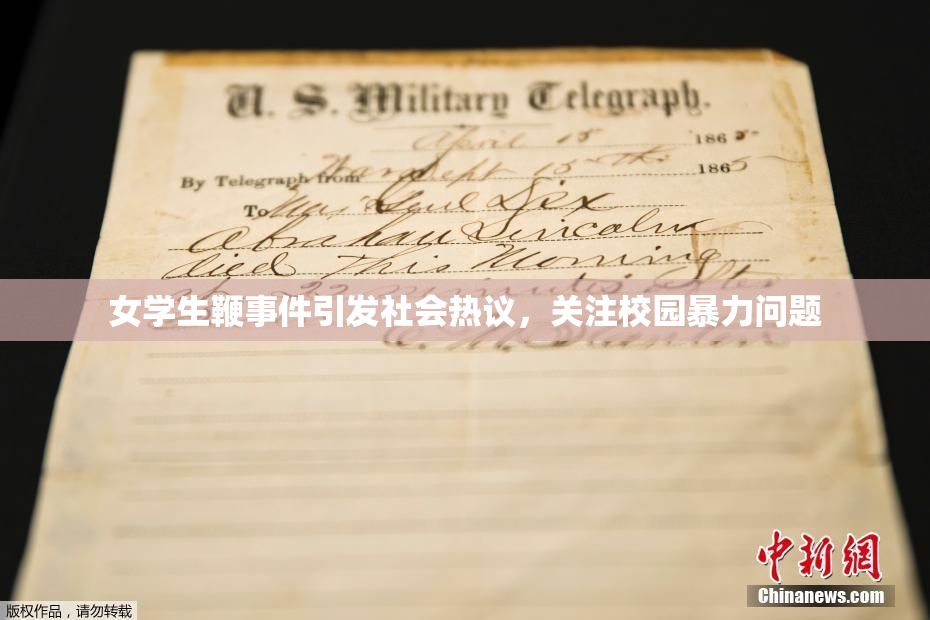 U. S. Military Telegraph.
April 15 1865.
By Telegraph from War Dept 15th 1865
To Maj Genl Dix
Abraham Lincoln
died This Morning
at 22 minutes after
女学生鞭事件引发社会热议，关注校园暴力问题
E. M. Stanton
中新網
Chinanews.com
版权作品，请勿转载